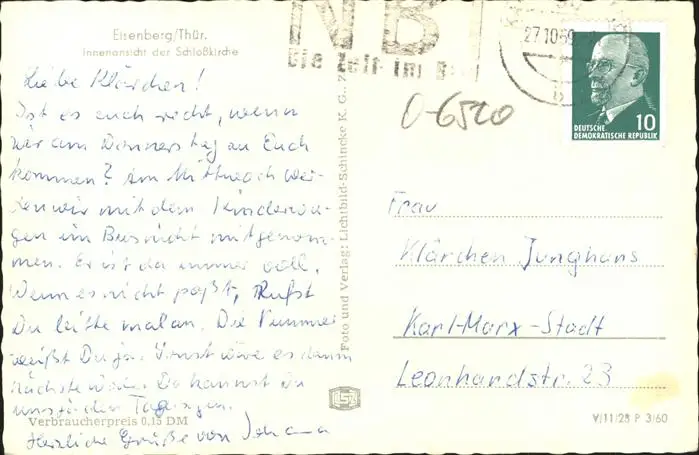 Eisenberg/Thür.
Innenansicht der Schloßkirche
NBI
Die Zeit im Bild
27.10.69
O-6520
10
DEUTSCHE
DEMOKRATISCHE REPUBLIK
Liebe Klärchen!
Ist es euch recht, wenn
wir am Donnerstag zu Euch
kommen? Am Mittwoch wer-
den wir mit dem Kinderwa-
gen im Bus nicht mitgenom-
men. Er ist da immer voll.
Wenn es nicht paßt, rufst
Du bitte mal an. Die Nummer
weißt Du ja. Sonst wäre es dann
nächste Woche. Da kannst Du
uns ja den Tag sagen.
Herzliche Grüße von
Verbraucherpreis 0,15 DM
Foto und Verlag: Lichtbild-Schincke K. G.,
Frau
Klärchen Junghans
Karl-Marx-Stadt
Leonhardstr. 23
V/11/28 P 3/60